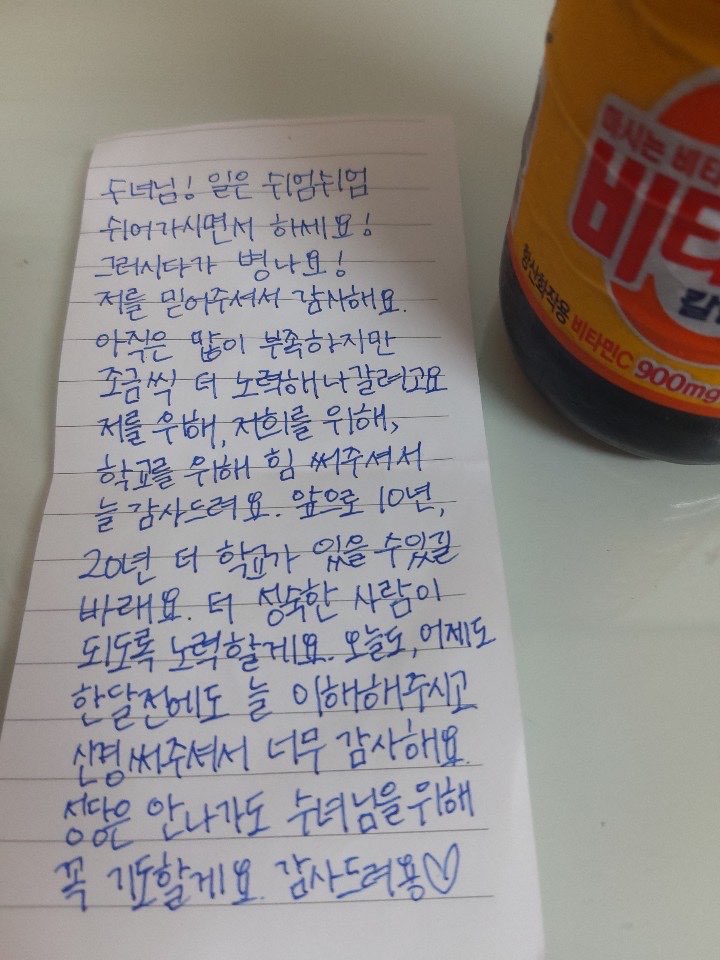 수녀님! 일은 쉬엄쉬엄
쉬어가시면서 하세요!
그러시다가 병나요!
저를 믿어주셔서 감사해요.
아직은 많이 부족하지만
조금씩 더 노력해나갈려고요
저를 위해, 저희를 위해,
학교를 위해 힘 써주셔서
늘 감사드려요. 앞으로 10년,
20년 더 학교가 있을 수있길
바래요. 더 성숙한 사람이
되도록 노력할게요. 오늘도, 어제도
한달전에도 늘 이해해주시고
신경써주셔서 너무 감사해요.
성당은 안나가도 수녀님을 위해
꼭 기도할게요. 감사드려용♡
마시는 비타
비타
항산화작용 비타민C 900mg